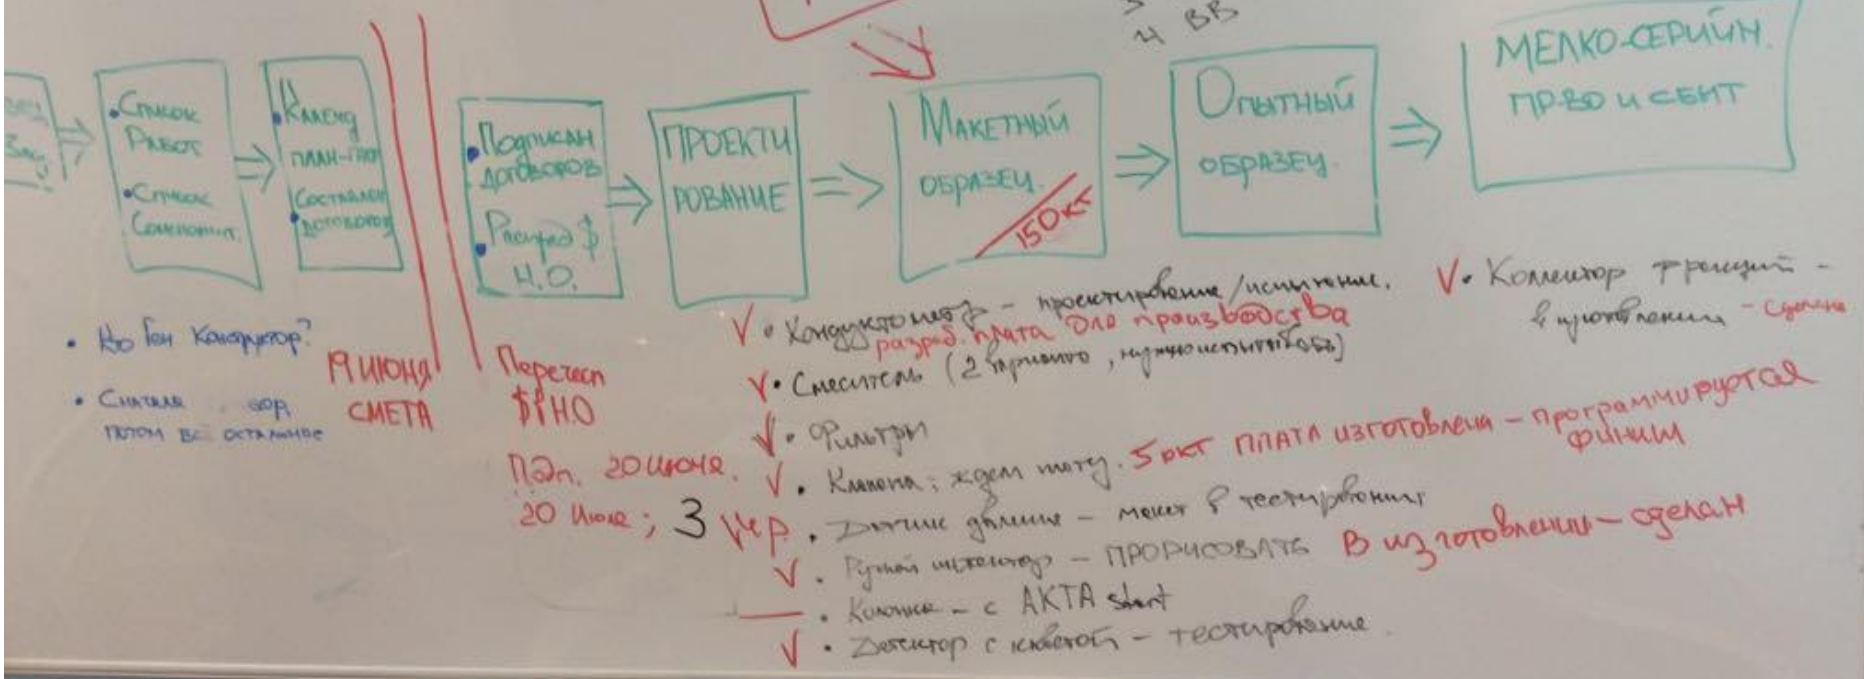 4 ВВ
Список
Работ
Список
Календ
план-гра
Составлен
договоров
Подписан
договоров
Распред $
Н.О.
ПРОЕКТИ
РОВАНИЕ
МАКЕТНЫЙ
ОБРАЗЕЦ.
15 ОКТ
ОПЫТНЫЙ
ОБРАЗЕЦ.
МЕЛКО-СЕРИЙН.
ПР-ВО И СБЫТ
Ген Кондуктор?
Сначала
ПОТОМ ВС ОСТАЛЬНОЕ
19 ИЮНЯ
СМЕТА
Перечесл
Н.О
Пдп. 20 июня.
20 Июля; 3
V • Кондуктометр – проектирование/испытание.
разраб. плата для производства
V • Смеситель (2 варианта, нужно испытывать)
V • Фильтры
V • Клапана; ждем плату. 5 окт ПЛАТА ИЗГОТОВЛЕНА – программируется
ФИНИШ
• Датчик давления – макет в тестировании
V • Ручной инжектор – ПРОРИСОВАТЬ В изготовлении – сделан
— • Колонка – с AKTA start
V • Детектор с кюветой – тестирование.
V • Коллектор фракций –
в изготовлении – сделан